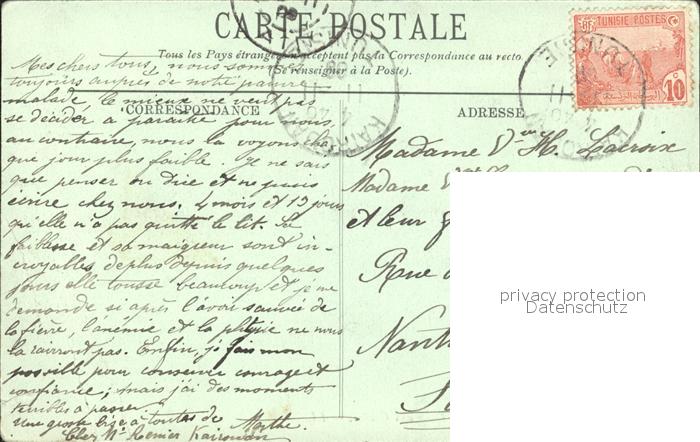 CARTE POSTALE
Tous les Pays étrangers n'acceptent pas la Correspondance au recto.
(Se renseigner à la Poste).
CORRESPONDANCE
Mes chers tous, nous sommes
toujours auprès de notre pauvre
malade, le mieux ne veut pas
se décider à paraître pour nous,
au contraire, nous la voyons chaque
que jour plus faible. Je ne sais
que penser ou dire et ne puis
écrire chez nous. 4 mois et 15 jours
qu'elle n'a pas quitté le lit. Sa
faiblesse et sa maigreur sont in-
croyables de plus depuis quelques
jours elle tousse beaucoup et je me
demande si après l'avoir sauvée de
la fièvre, l'anémie et la phtysie ne nous
la raviront pas. Enfin, je fais mon
possible pour conserver courage et
confiance; mais j'ai des moments
terribles à passer.
Une grosse bise à toutes de
Marthe
Chez Mr Renier Kairouan
ADRESSE
Madame Vve H. Lacroix
Madame
et leur
Rue
Nant
TUNISIE POSTES
RF
10
KAIROUAN
TUNISIE
privacy protection
Datenschutz